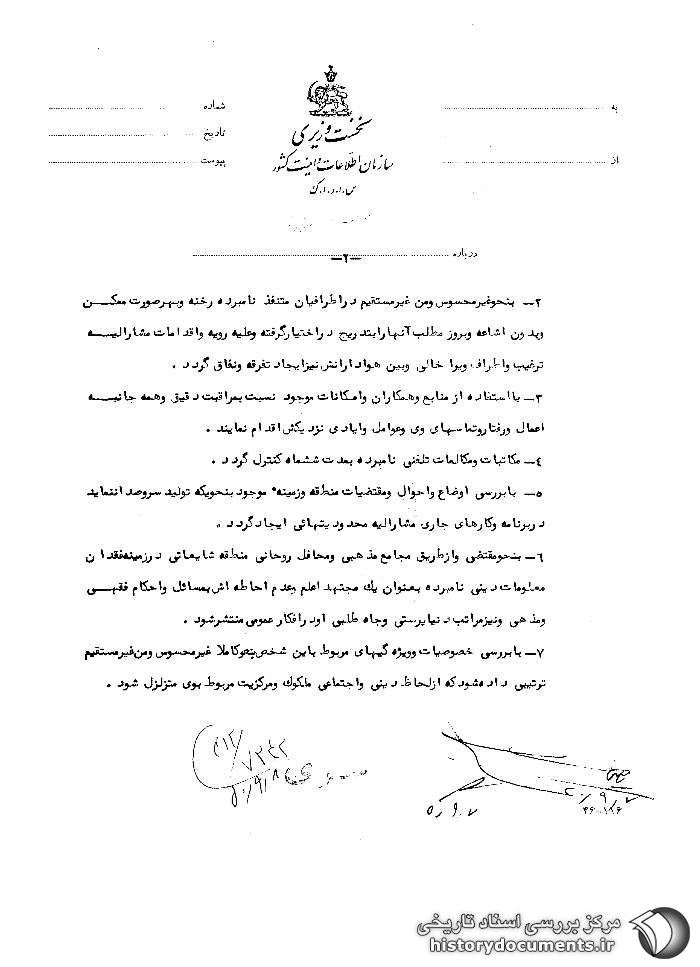 به
شماره
نخست وزیری
تاریخ
سازمان اطلاعات و امنیت کشور
از
پیوست
س.ا.و.ا.ک
درباره
—۲—
۲— بنحوغیرمحسوس ومن غیرمستقیم دراطرافیان متنفذ نامبرده رخنه وبهرصورت ممکن
وبدون اشاعه وبروز مطلب آنهارابتدریج دراختیارگرفته وعلیه رویه واقدامات مشارالیه
ترغیب واطراف ویرا خالی وبین هوادارانش نیزایجاد تفرقه ونفاق گردد .
۳— بااستفاده از منابع وهمکاران وامکانات موجود نسبت بمراقبت دقیق وهمه جانبه
اعمال ورفتاروتماسهای وی وعوامل وایادی نزدیکش اقدام نمایند .
۴— مکاتبات ومکالمات تلفنی نامبرده بمدت ششماه کنترل گردد .
۵— بابررسی اوضاع واحوال ومقتضیات منطقه وزمینه موجود بنحویکه تولید سروصدا ننماید
دربرنامه وکارهای جاری مشارالیه محدودیتهائی ایجاد گردد .
۶— بنحومقتضی وازطریق مجامع مذهبی ومحافل روحانی منطقه شایعاتی درزمینه فقدان
معلومات دینی نامبرده بعنوان یك مجتهد اعلم وعدم احاطه اش بمسائل واحکام فقهی
ومذهبی ونیزمراتب دنیاپرستی وجاه طلبی اودرافکار عمومی منتشرشود .
۷— بابررسی خصوصیات وویژه گیهای مربوط باین شخص بنحوکاملا غیرمحسوس ومن غیرمستقیم
ترتیبی داده شودکه ازلحاظ دینی واجتماعی ملکوك ومرکزیت مربوط بوی متزلزل شود .
۳۱۲/
۷۲۴۲
۵۰/۹/۸
۵۰/۹/۷
۵۰.۹.۷
مرکز بررسی اسناد تاریخی
historydocuments.ir